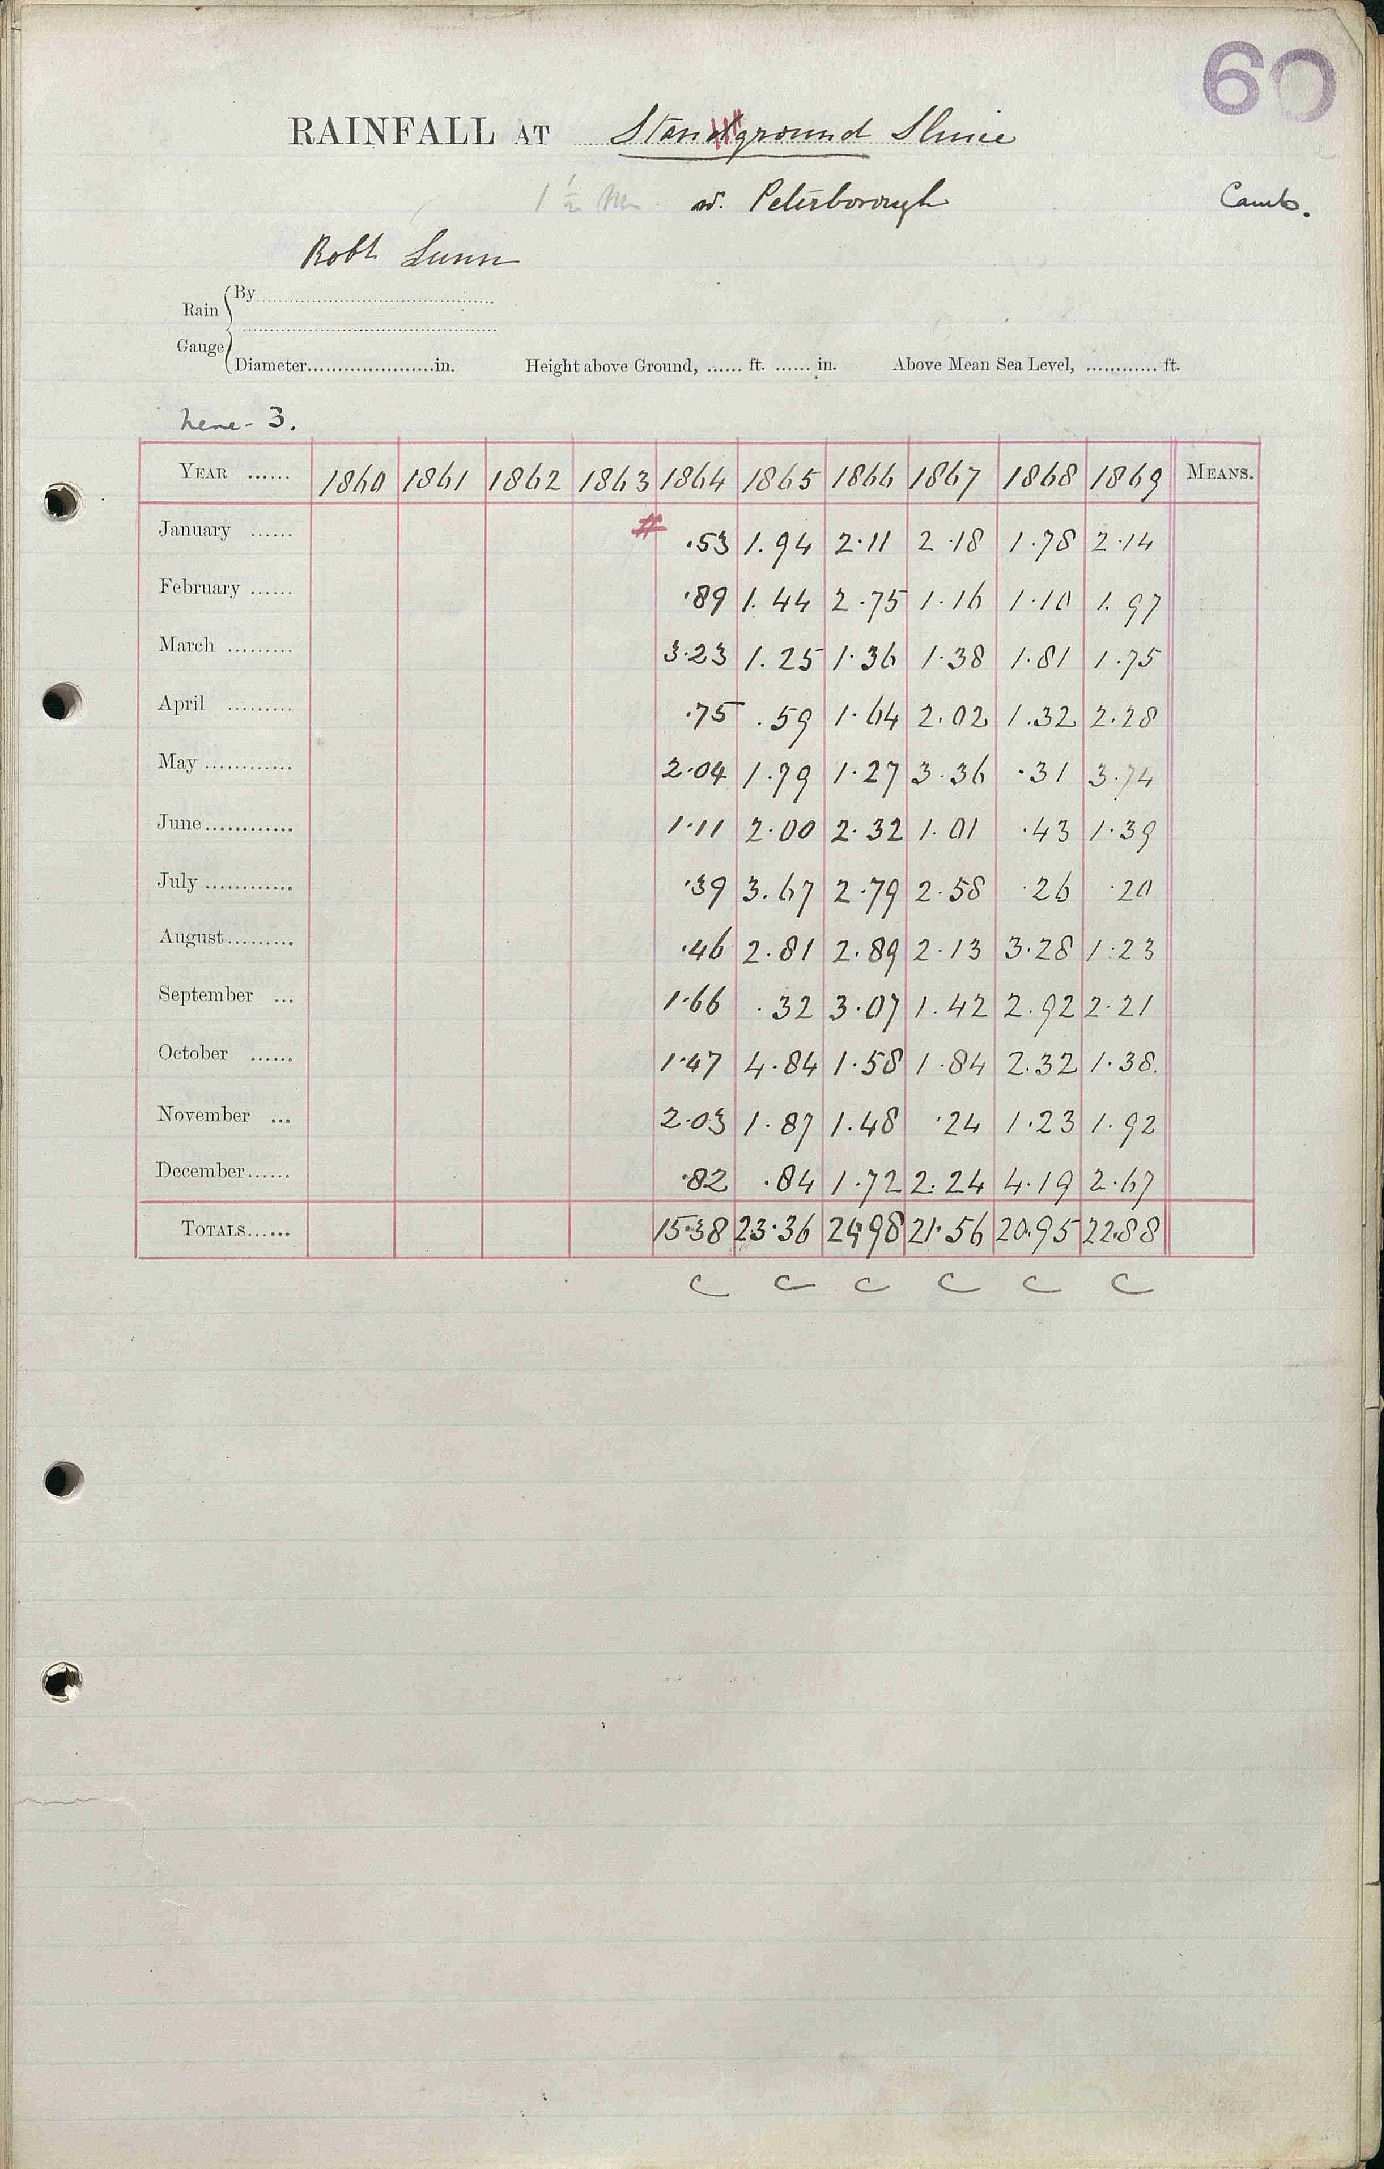 60
RAINFALL AT Standground Sluice
1 1/2 M w. Peterborough Camb.
Robt Lunn
Rain Gauge { By
Diameter in. Height above Ground, ft. in. Above Mean Sea Level, ft.
Nene - 3.
YEAR ...... 1860 1861 1862 1863 1864 1865 1866 1867 1868 1869 MEANS.
January ...... # .53 1.94 2.11 2.18 1.78 2.14
February ...... .89 1.44 2.75 1.16 1.10 1.97
March ......... 3.23 1.25 1.36 1.38 1.81 1.75
April ......... .75 .59 1.64 2.02 1.32 2.28
May ............ 2.04 1.79 1.27 3.36 .31 3.74
June............ 1.11 2.00 2.32 1.01 .43 1.39
July ............ .39 3.67 2.79 2.58 .26 .20
August......... .46 2.81 2.89 2.13 3.28 1.23
September ... 1.66 .32 3.07 1.42 2.92 2.21
October ...... 1.47 4.84 1.58 1.84 2.32 1.38.
November ... 2.03 1.87 1.48 .24 1.23 1.92
December...... .82 .84 1.72 2.24 4.19 2.67
TOTALS...... 15.38 23.36 24.98 21.56 20.95 22.88
C C C C C C